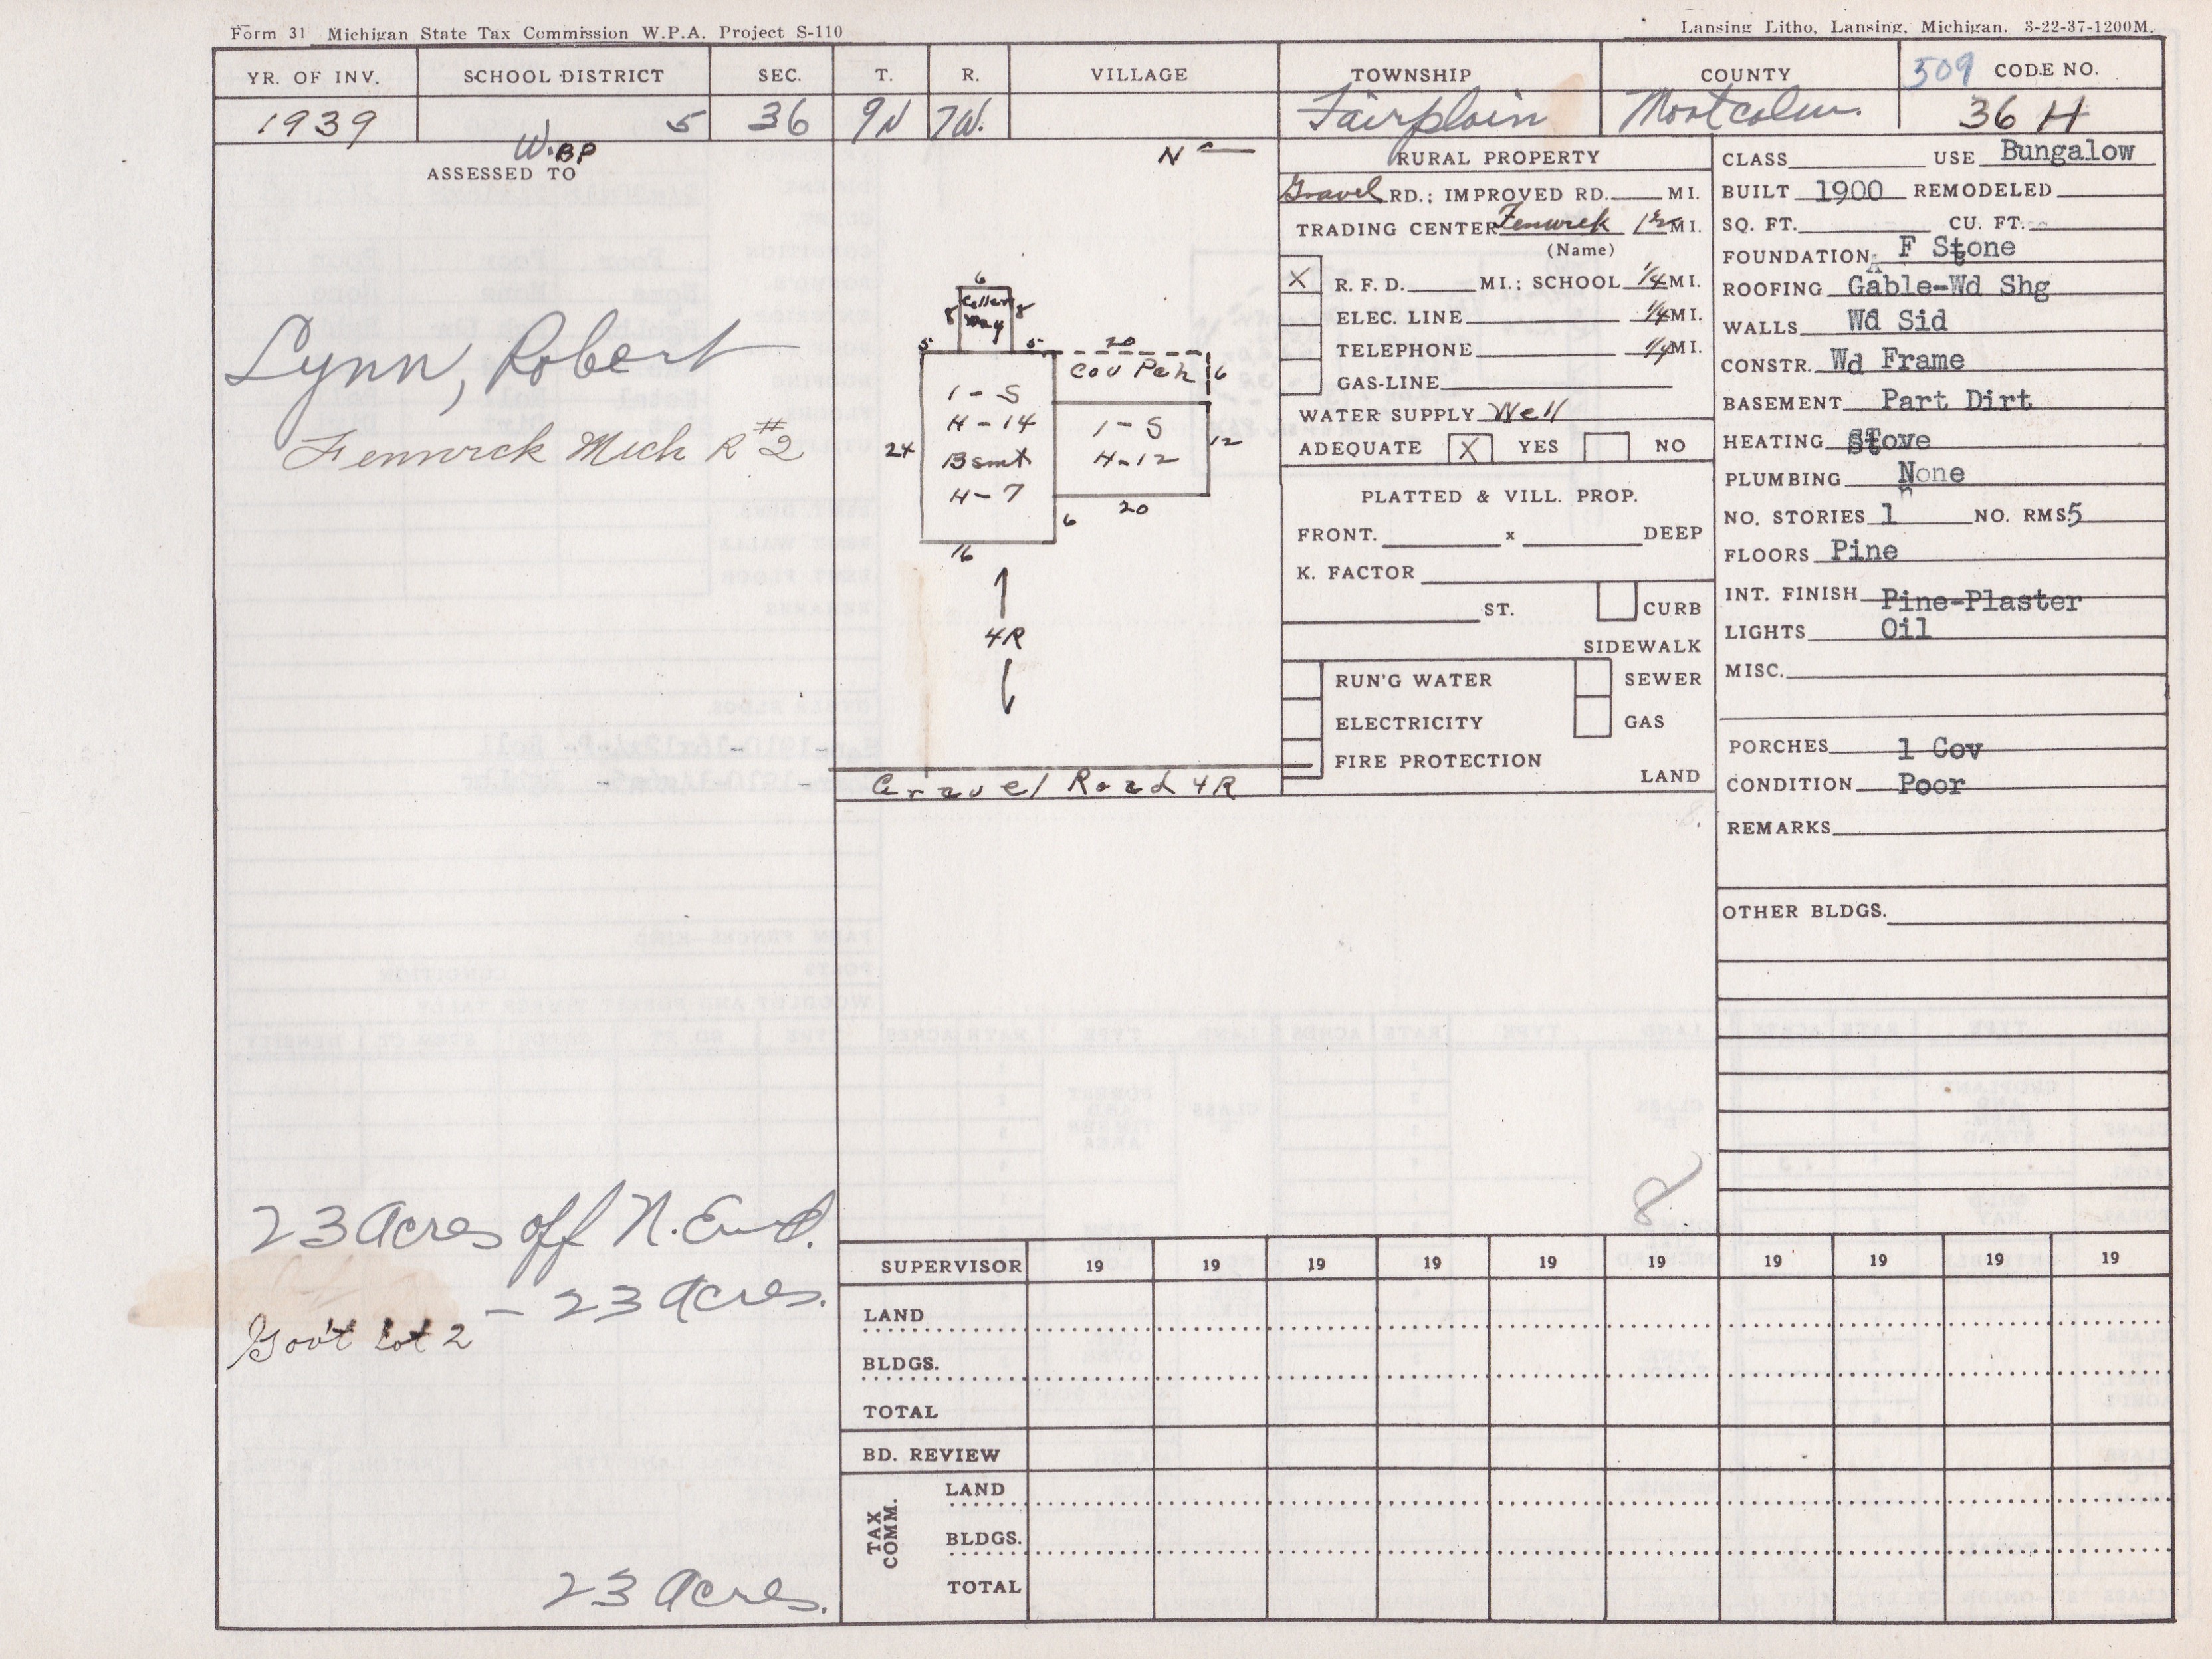 Form 31 Michigan State Tax Commission W.P.A. Project S-110
Lansing Litho, Lansing, Michigan. 3-22-37-1200M.
YR. OF INV. SCHOOL DISTRICT SEC. T. R. VILLAGE TOWNSHIP COUNTY 509 CODE NO.
1939 5 36 9N 7W. Fairplain Montcalm. 36 H
W.BP
ASSESSED TO
Lynn, Robert
Fenwick Mich R #2
23 Acres off N. End.
- 23 Acres.
Gov't Lot 2
23 Acres.
N
6
8 Cellar Way 8
5 5 20
Cov Pch 6
1-S
H-14
Bsmt
H-7
24
1-S
H-12
12
20
6
16
4R
Gravel Road 4R
RURAL PROPERTY
Gravel RD.; IMPROVED RD. MI.
TRADING CENTER Fenwick 1½ MI.
(Name)
X R. F. D. MI.; SCHOOL ¼ MI.
ELEC. LINE ¼ MI.
TELEPHONE ¼ MI.
GAS-LINE
WATER SUPPLY Well
ADEQUATE X YES NO
PLATTED & VILL. PROP.
FRONT. x DEEP
K. FACTOR
ST. CURB
SIDEWALK
RUN'G WATER SEWER
ELECTRICITY GAS
FIRE PROTECTION
LAND
8
CLASS USE Bungalow
BUILT 1900 REMODELED
SQ. FT. CU. FT.
FOUNDATION F Stone
ROOFING Gable-Wd Shg
WALLS Wd Sid
CONSTR. Wd Frame
BASEMENT Part Dirt
HEATING Stove
PLUMBING None
NO. STORIES 1 NO. RMS. 5
FLOORS Pine
INT. FINISH Pine-Plaster
LIGHTS Oil
MISC.
PORCHES 1 Cov
CONDITION Poor
REMARKS
OTHER BLDGS.
SUPERVISOR 19 19 19 19 19 19 19 19 19 19
LAND
BLDGS.
TOTAL
BD. REVIEW
TAX COMM.
LAND
BLDGS.
TOTAL